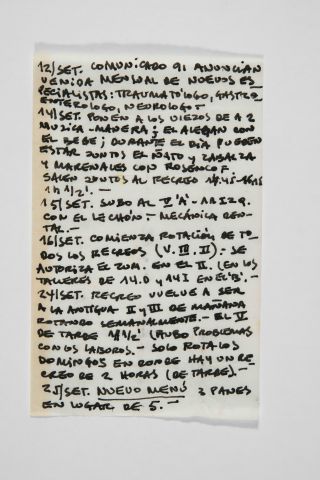 12/SET. COMUNICADO 91 ANUNCIAN
VENIDA MENSUAL DE NUEVOS ES
PECIALISTAS: TRAUMATÓLOGO, GASTRO
ENTEROLOGO, NEUROLOGO.-
14/SET. PONEN A LOS VIEJOS DE A 2
MUJICA-MANERA; EL ALEMAN CON
EL BEBE; DURANTE EL DIA PUEDEN
ESTAR JUNTOS EL ÑATO Y ZABALZA
Y MARENALES CON ROSENCOF.
SALEN JUNTOS AL RECREO 14.45-16.15
1 H 1/2!. -
15/SET. SUBO AL V "A" - A IZQ.
CON EL LECHÓN - MECÁNICA DEN-
TAL. -
16/SET. COMIENZA ROTACIÓN DE TO-
DOS LOS RECREOS (V. III. II). - SE
AUTORIZA EL ZUM. EN EL II. (EN LOS
TALLERES DE 14.0 Y 14 I EN EL "B". -
24/SET. RECREO VUELVE A SER
A LA ANTIGUA II Y III DE MAÑANA
ROTANDO SEMANALMENTE. - EL V
DE TARDE 1H 1/2 (HUBO PROBLEMAS
CON LOS LABOROS. - SOLO ROTA LOS
DOMINGOS EN DONDE HAY UN RE
CREO DE 2 HORAS (DE TARDE). -
25/SET. NUEVO MENÚ 3 PANES
EN LUGAR DE 5. -